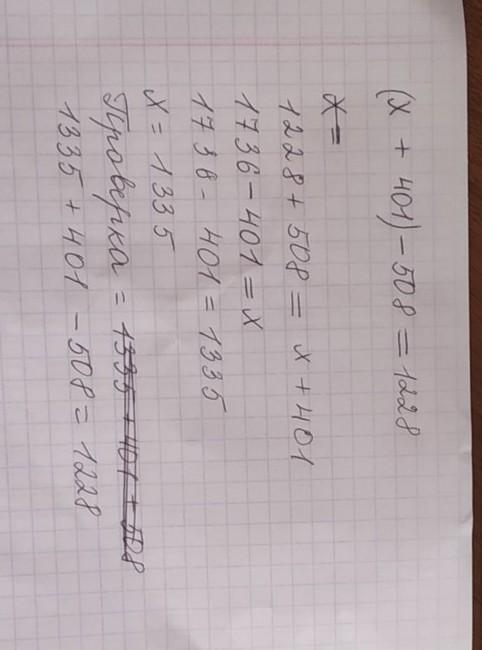 (x + 401) - 508 = 1228
x =
1228 + 508 = x + 401
1736 - 401 = x
1736 - 401 = 1335
x = 1335
Проверка = 1335 + 401 + 508
1335 + 401 - 508 = 1228